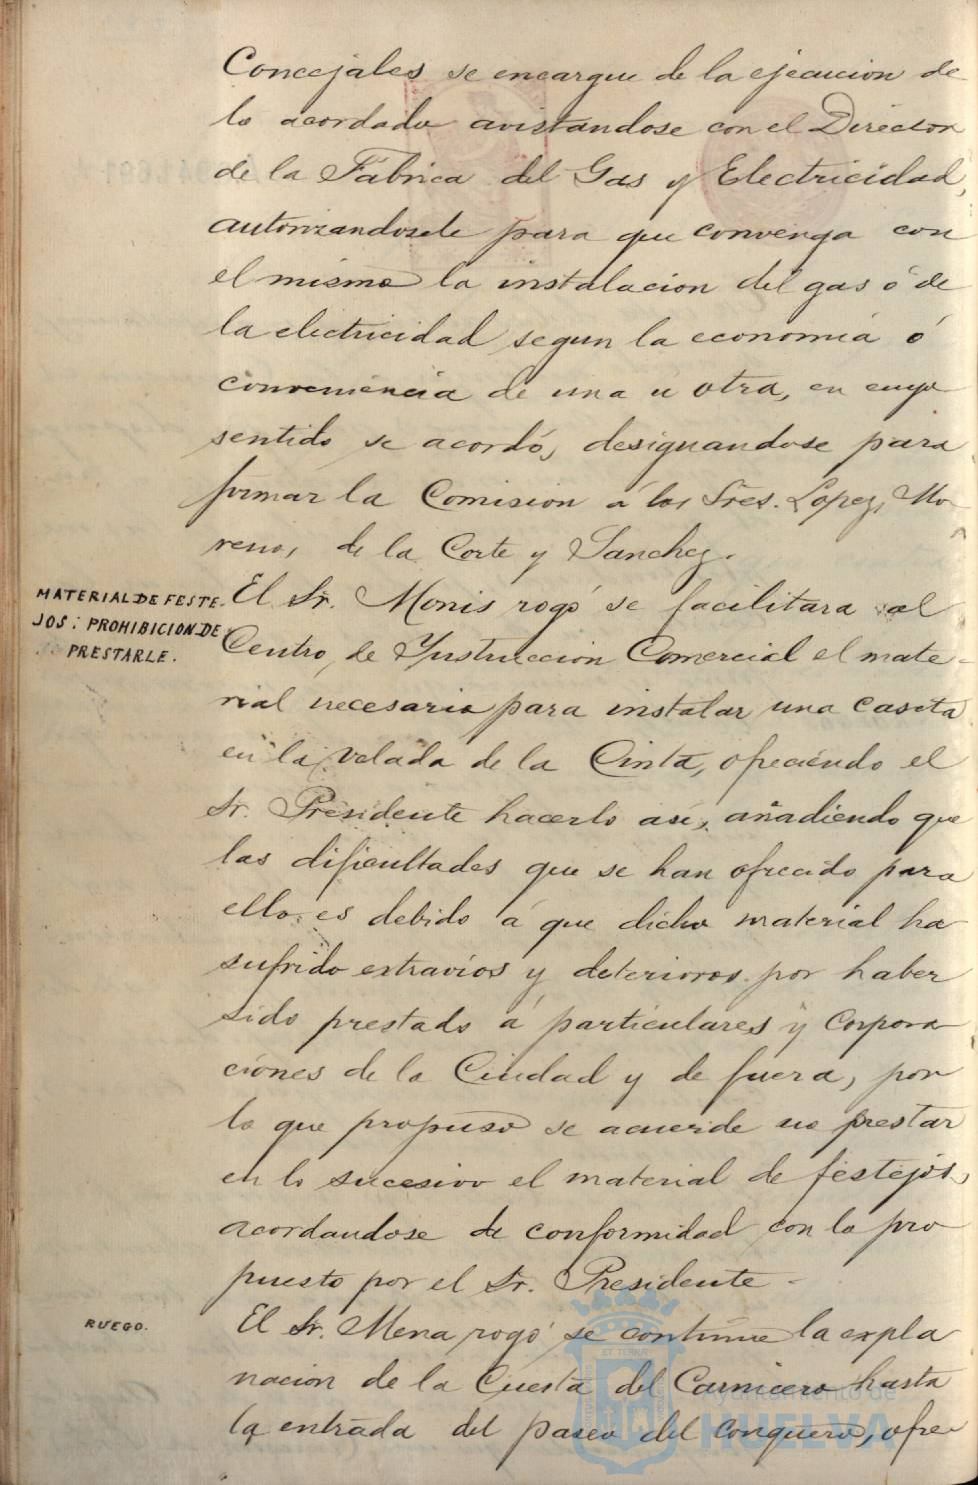 Concejales se encargue de la ejecucion de
lo acordado avistandose con el Director
de la Fabrica del Gas y Electricidad,
autorizandosele para que convenga con
el mismo la instalacion del gas ó de
la electricidad segun la economia ó
conveniencia de una ú otra, en cuyo
sentido se acordó, designandose para
formar la Comision á los Sres. Lopez, Mo
reno, de la Corte y Sanchez.
MATERIAL DE FESTE-
JOS: PROHIBICION DE
PRESTARLE.
El Sr. Monis rogó se facilitara al
Centro de Ynstruccion Comercial el mate-
rial necesario para instalar una caseta
en la velada de la Cinta, ofreciendo el
Sr. Presidente hacerlo asi, añadiendo que
las dificultades que se han ofrecido para
ello es debido á que dicho material ha
sufrido extravios y deterioros por haber
sido prestado á particulares y Corpora
ciones de la Ciudad y de fuera, por
lo que propuso se acuerde no prestar
en lo sucesivo el material de festejos,
acordandose de conformidad con lo pro
puesto por el Sr. Presidente-
RUEGO.
El Sr. Mena rogó se continue la expla
nacion de la Cuesta del Carnicero hasta
la entrada del paseo del Conquero, ofre
Ayuntamiento de
HUELVA